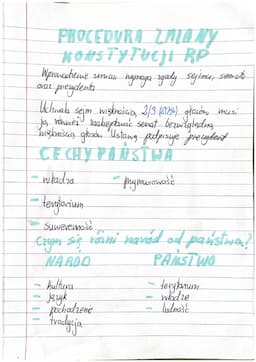 PROCEDURA ZMIANY
KONSTYTUCJI RP
Wprowadzenie zmian wymaga zgody sejmu, senatu
oraz prezydenta
Uchwala sejm większością 2/3 głosów musi
ją również zaakceptować senat bezwzględną
większością głosów Ustawę podpisuje prezydent
CECHY PAŃSTWA
- władza - przymusowość
- terytorium
- suwerenność
Czym się różni naród od państwa?
NARÓD PAŃSTWO
- kultura - terytorium
- język - władze
- pochodzenie - ludność
- tradycja